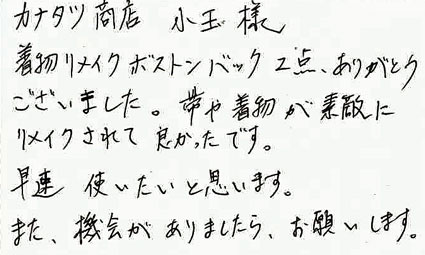 カナタツ商店 小玉 様
着物リメイクボストンバック 2点、ありがとう
ございました。帯や着物が素敵に
リメイクされて良かったです。
早速 使いたいと思います。
また、機会がありましたら、お願いします。